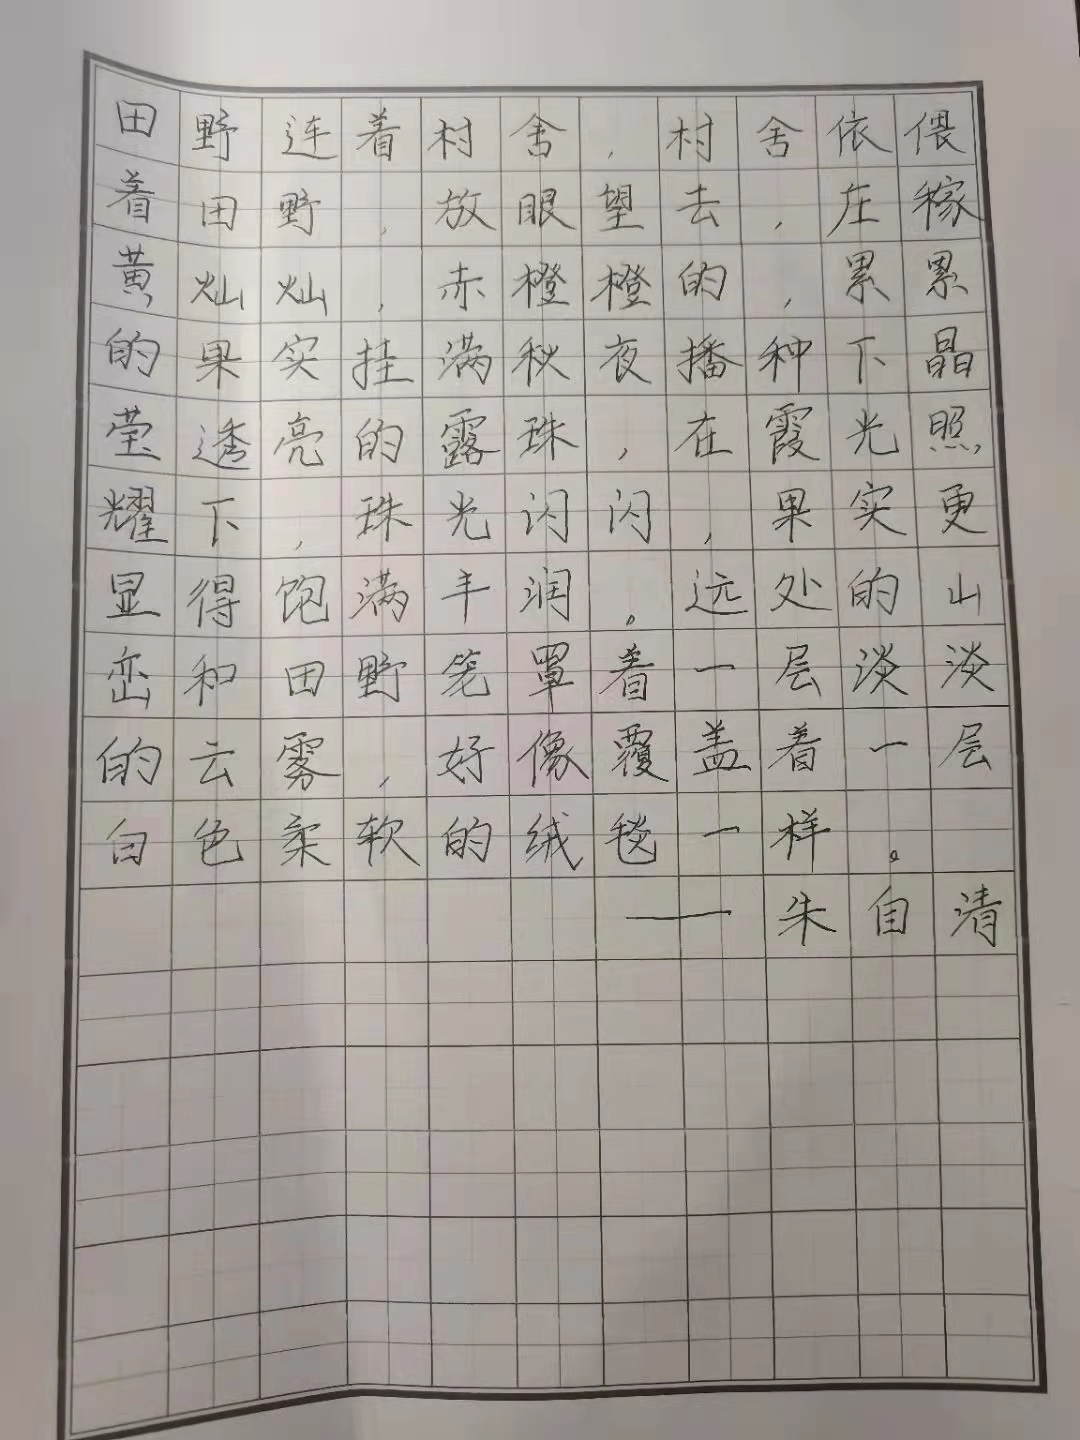 田野连着村舍，村舍依偎
着田野，放眼望去，庄稼
黄灿灿，赤橙橙的，累累
的果实挂满秋夜播种下晶
莹透亮的露珠，在霞光照
耀下，珠光闪闪，果实更
显得饱满丰润。远处的山
峦和田野笼罩着一层淡淡
的云雾，好像覆盖着一层
白色柔软的绒毯一样。
——朱自清